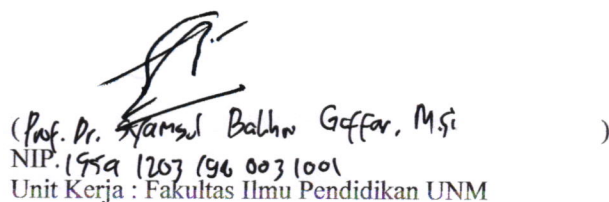 (Prof. Dr. Syamsul Bakhri Gaffar, M.Si )
NIP. 1959 1203 198 003 1001
Unit Kerja : Fakultas Ilmu Pendidikan UNM